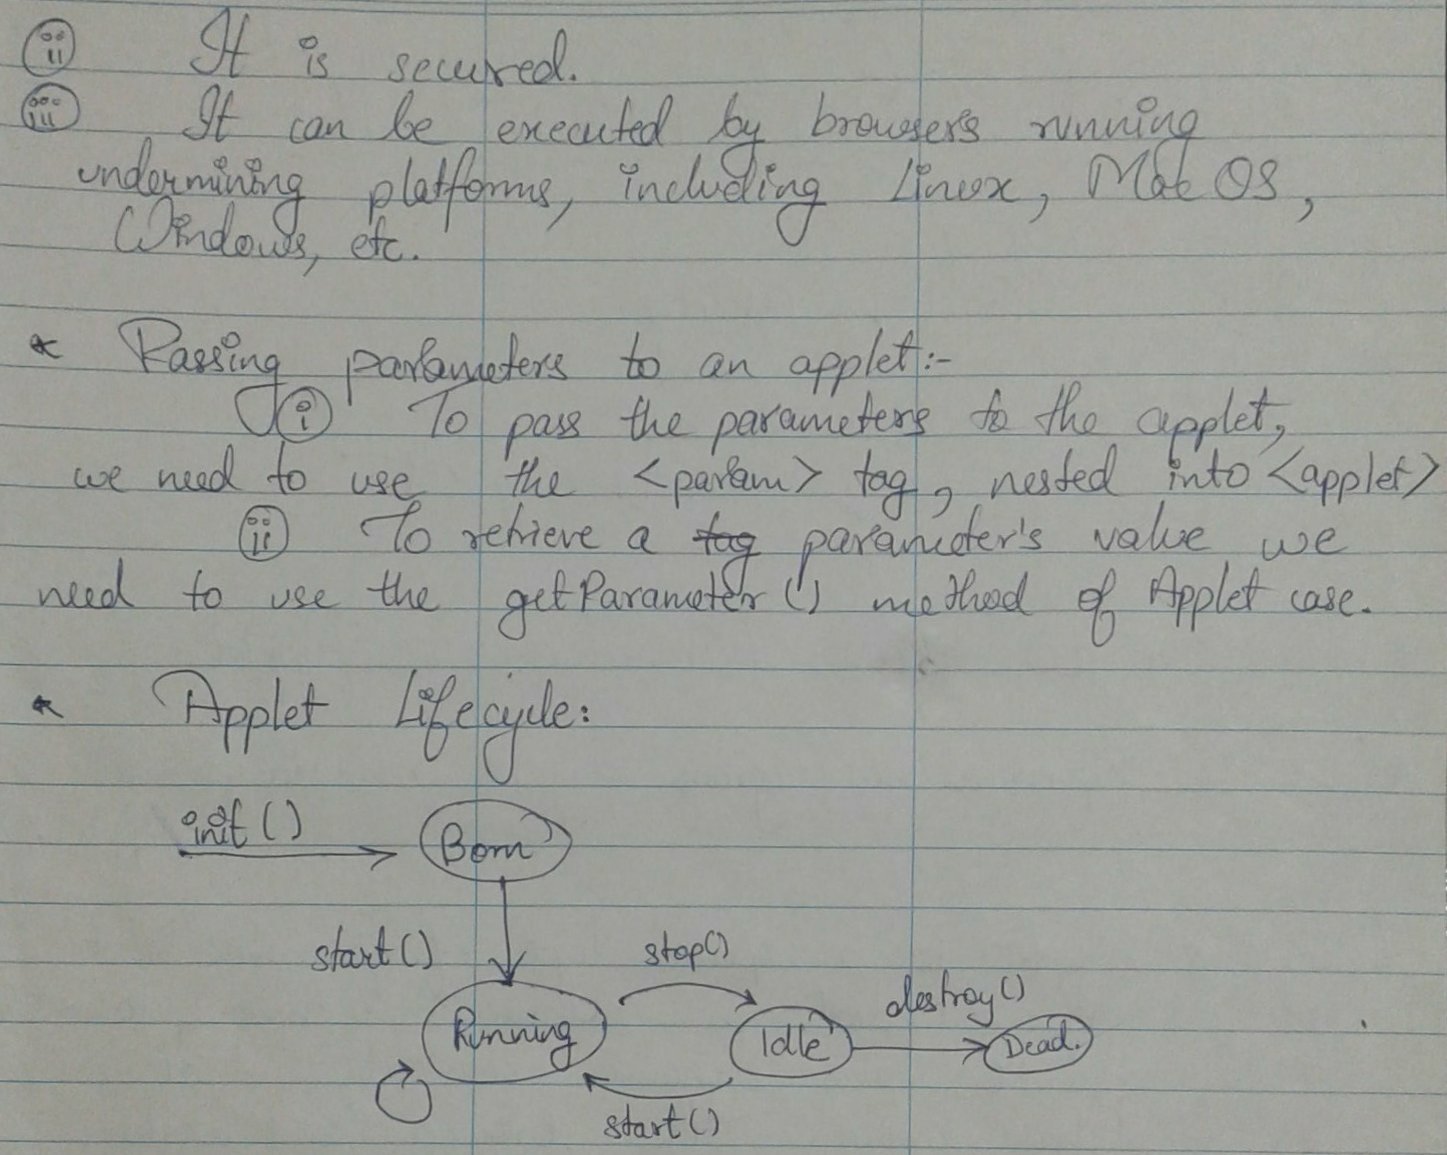 ii It is secured.
iii It can be executed by browsers running
undermining platforms, including Linux, Mac OS,
Windows, etc.
* Passing parameters to an applet:-
i To pass the parameters to the applet,
we need to use the <param> tag, nested into <applet>
ii To retrieve a tag parameter's value we
need to use the getParameter() method of Applet case.
* Applet Lifecycle:
init()
Born
start()
stop()
destroy()
Running
Idle
Dead.
start()